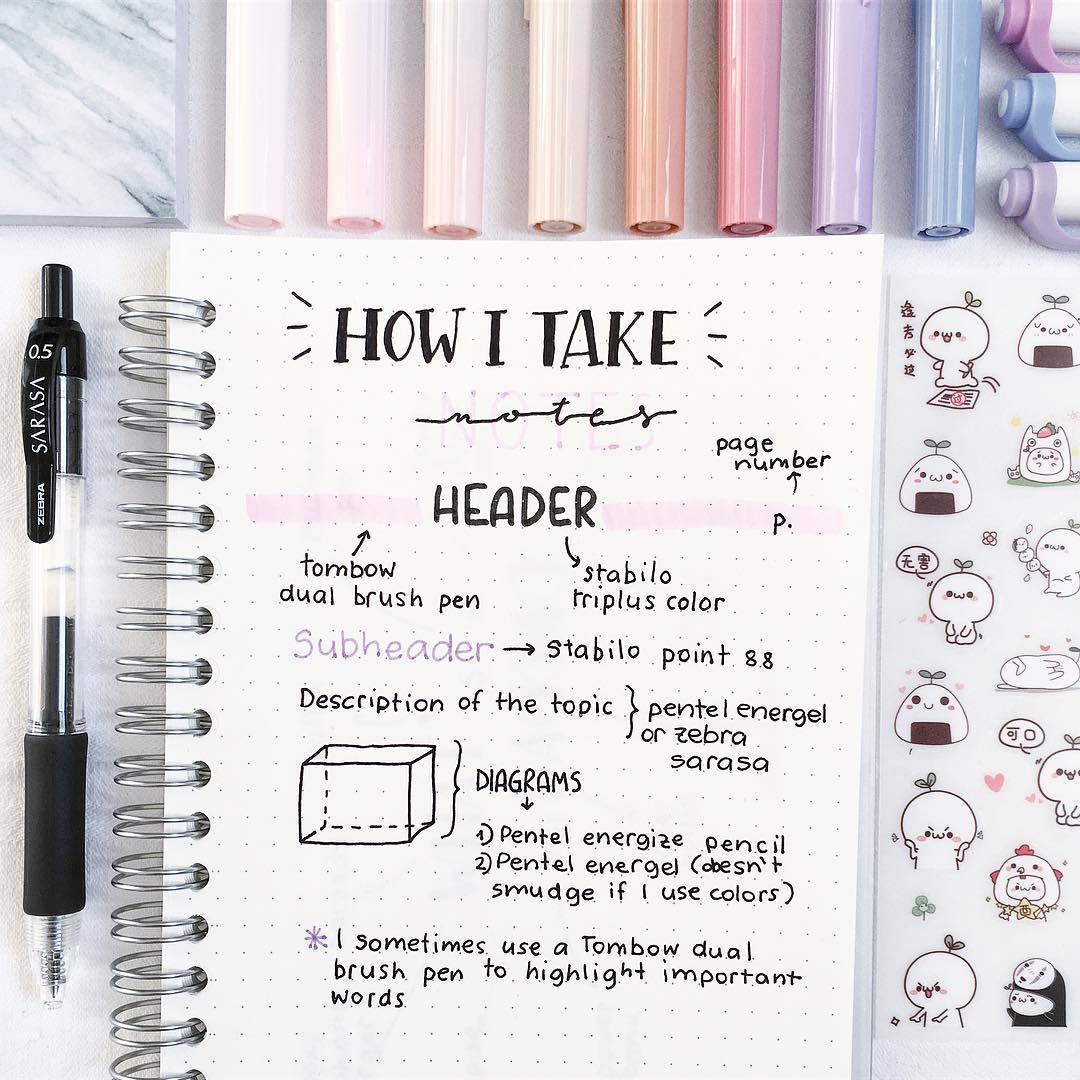 HOW I TAKE
NOTES
notes
page
number
HEADER
p.
tombow
dual brush pen
stabilo
triplus color
Subheader → stabilo point 88
Description of the topic } pentel energel
or zebra
sarasa
DIAGRAMS
1) Pentel energize pencil
2) Pentel energel (doesn't
smudge if I use colors)
* I sometimes use a Tombow dual
brush pen to highlight important
words
0.5
SARASA
ZEBRA
无害
可口